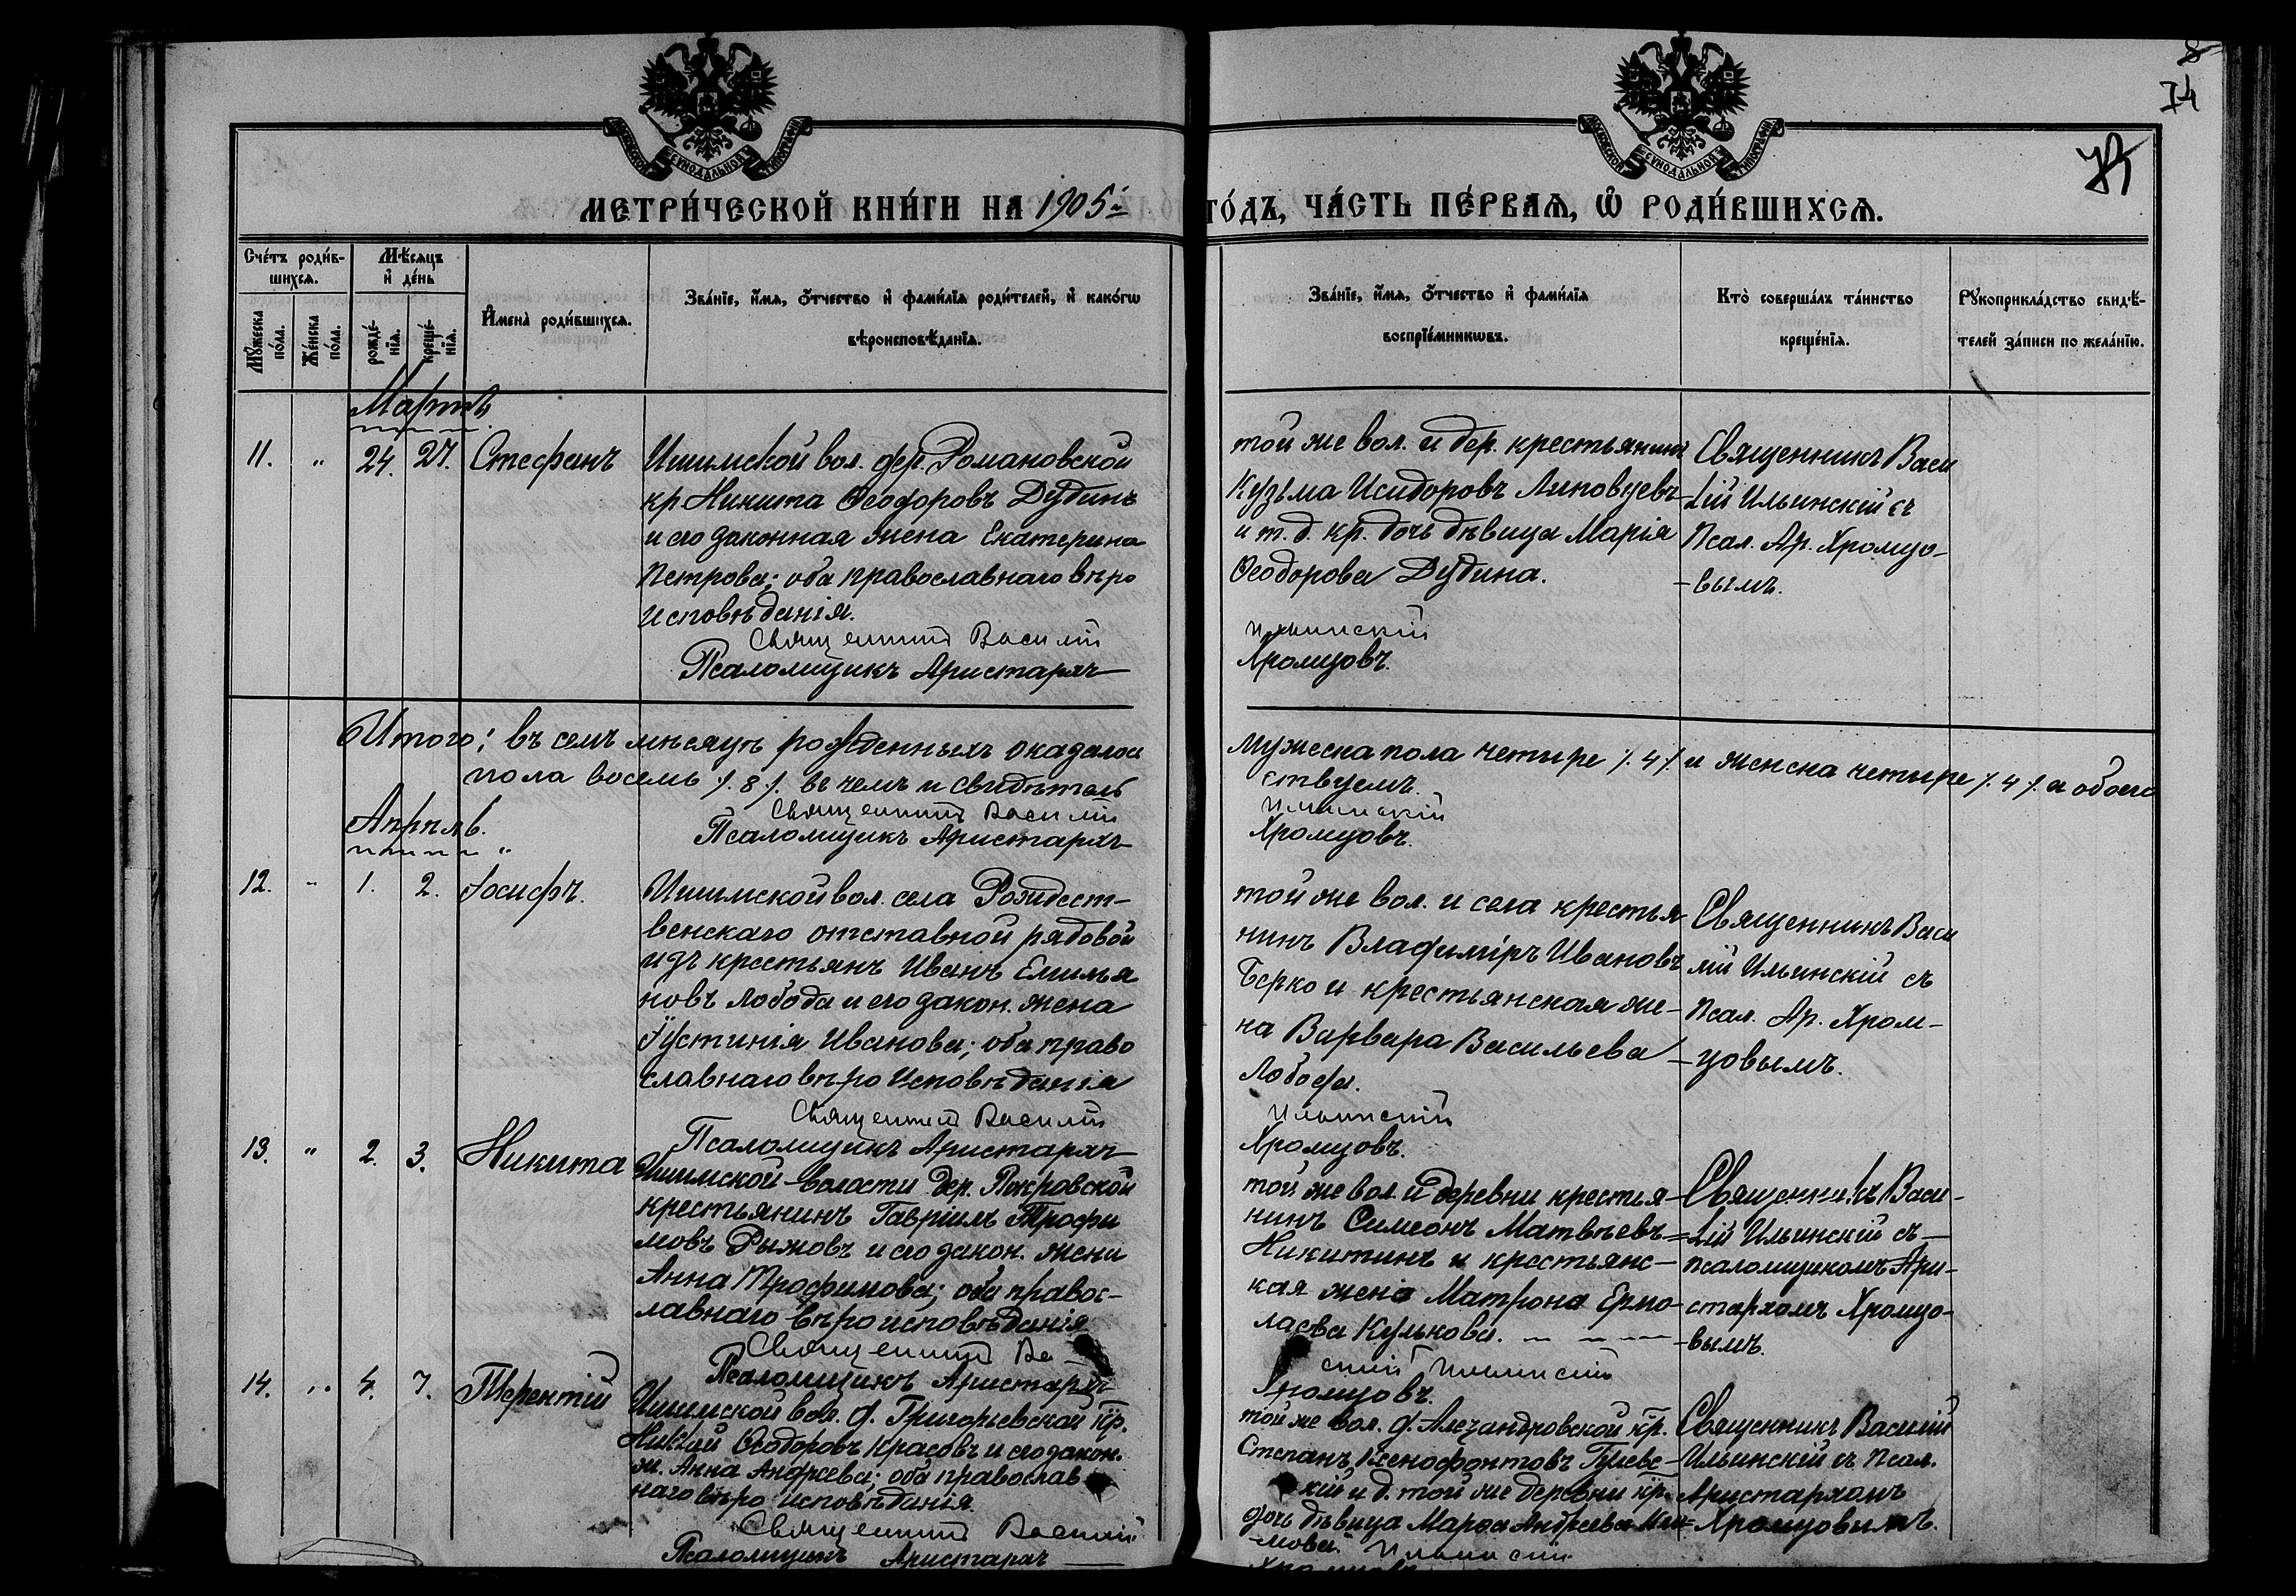 8
74
75
МОСКОВСКОЙ СѴНОДАЛЬНОЙ ТИПОГРАФІИ
МОСКОВСКОЙ СѴНОДАЛЬНОЙ ТИПОГРАФІИ
МЕТРИ́ЧЕСКОЙ КНИ́ГИ НА 1905й
ГО́ДЪ, ЧА́СТЬ ПЕ́РВАѦ, Ѡ҆ РОДИ́ВШИХСѦ.
Сче́тъ роди́в-
шихсѧ.
Мꙋжеска
по́ла.
Же́нска
по́ла.
Мѣ́сѧцъ
и҆ де́нь
рожде́-
нїѧ.
креще́-
нїѧ.
И҆мена̀ роди́вшихсѧ.
Зва́нїе, и҆́мѧ, ѻ҆́тчество и҆ фамѝлїѧ роди́телей, и҆ како́гѡ
вѣроисповѣ́данїѧ.
Зва́нїе, и҆́мѧ, ѻ҆́тчество и҆ фамѝлїѧ
воспрїе́мникѡвъ.
Кто̀ соверша́лъ та́инство
креще́нїѧ.
Рꙋкоприкла́дство свидѣ́-
телей за́писи по жела́нїю.
Мартъ
11. " 24. 27. Стефанъ
Ишимской вол. дер. Романовской
кр Никита Ѳеодоровъ Дубинъ
и его законная жена Екатерина
Петрова; оба православнаго вѣро
исповѣданія.
Священникъ Василій
Псаломщикъ Аристархъ
той же вол. и дер. крестьянинъ
Кузьма Исидоровъ
и т. д. кр. дочь дѣвица Марія
Ѳеодорова Дубина.
Ильинскій
Хромцовъ.
Священникъ Васи
лій Ильинскій съ
Псал. Ар. Хромцо-
-вымъ.
Итого: въ семъ мѣсяцѣ рожденныхъ оказалось
мужеска пола четыре /.4/. и женска четыре /.4/. а обоего
пола восемь /.8/. въ чемъ и свидѣтель
ствуемъ.
Священникъ Василій
Ильинскій
Псаломщикъ Аристархъ
Хромцовъ.
Апрѣль.
12. " 1. 2. Іосифъ.
Ишимской вол. села Рождест-
венскаго отставной рядовой
изъ крестьянъ Иванъ Емелья
новъ Лобода и его закон. жена
Іустинія Иванова; оба право
славнаго вѣро исповѣданія
Священникъ Василій
Псаломщикъ Аристархъ
той же вол. и села крестья
нинъ Владиміръ Ивановъ
Берко и крестьянская же-
на Варвара Васильева
Лобода.
Ильинскій
Хромцовъ.
Священникъ Васи
лій Ильинскій съ
Псал. Ар. Хром-
-цовымъ.
13. " 2. 3. Никита
Ишимской волости дер. Покровской
крестьянинъ Гавріилъ Трофи
мовъ Рыжовъ и его закон. жена
Анна Трофимова; оба правос-
лавнаго вѣроисповѣданія
Священникъ Ва-
Псаломщикъ Аристархъ
той же вол. и деревни крестья-
нинъ Симеонъ Матвѣевъ
Никитинъ и крестьянс-
кая жена Матрона Ермо-
лаева Кулькова.
силій Ильинскій
Хромцовъ.
Священникъ Васи-
лій Ильинскій съ
псаломщикомъ Ари-
стархомъ Хромцо-
-вымъ.
14. " 4. 7. Терентій
Ишимской вол. д. Григорьевской кр.
Ѳеодоровъ Красовъ и его закон.
ж. Анна Андреева; оба православ
наго вѣро исповѣданія.
Священникъ Василій
Псаломщикъ Аристархъ
той же вол. д. Александровской кр.
Степанъ Ксенофонтовъ
кій и д. той же деревни кр.
дочь дѣвица Марѳа Андреева
-мова. Ильинскій
Священникъ Василій
Ильинскій съ Псал.
Аристархомъ
Хромцовымъ.